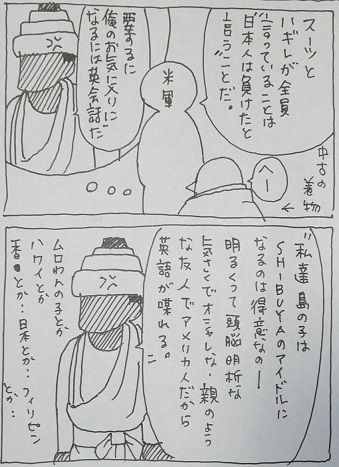 スーツと
ハギレが全員
言っていることは
日本人は負けたと
言うことだ。
米軍
へー
中古の
着物
要するに
俺のお気に入りに
なるには英会話だ
私達島の子は
SHIBUYAのアイドルに
なるのは得意なのー
明るくって頭脳明析な
気さくでオシャレな、親のよう
な友人でアメリカ人だから
英語が喋れる。
ムロわんの子とか
ハワイとか
とか‥日本とか‥フィリピン
とか‥